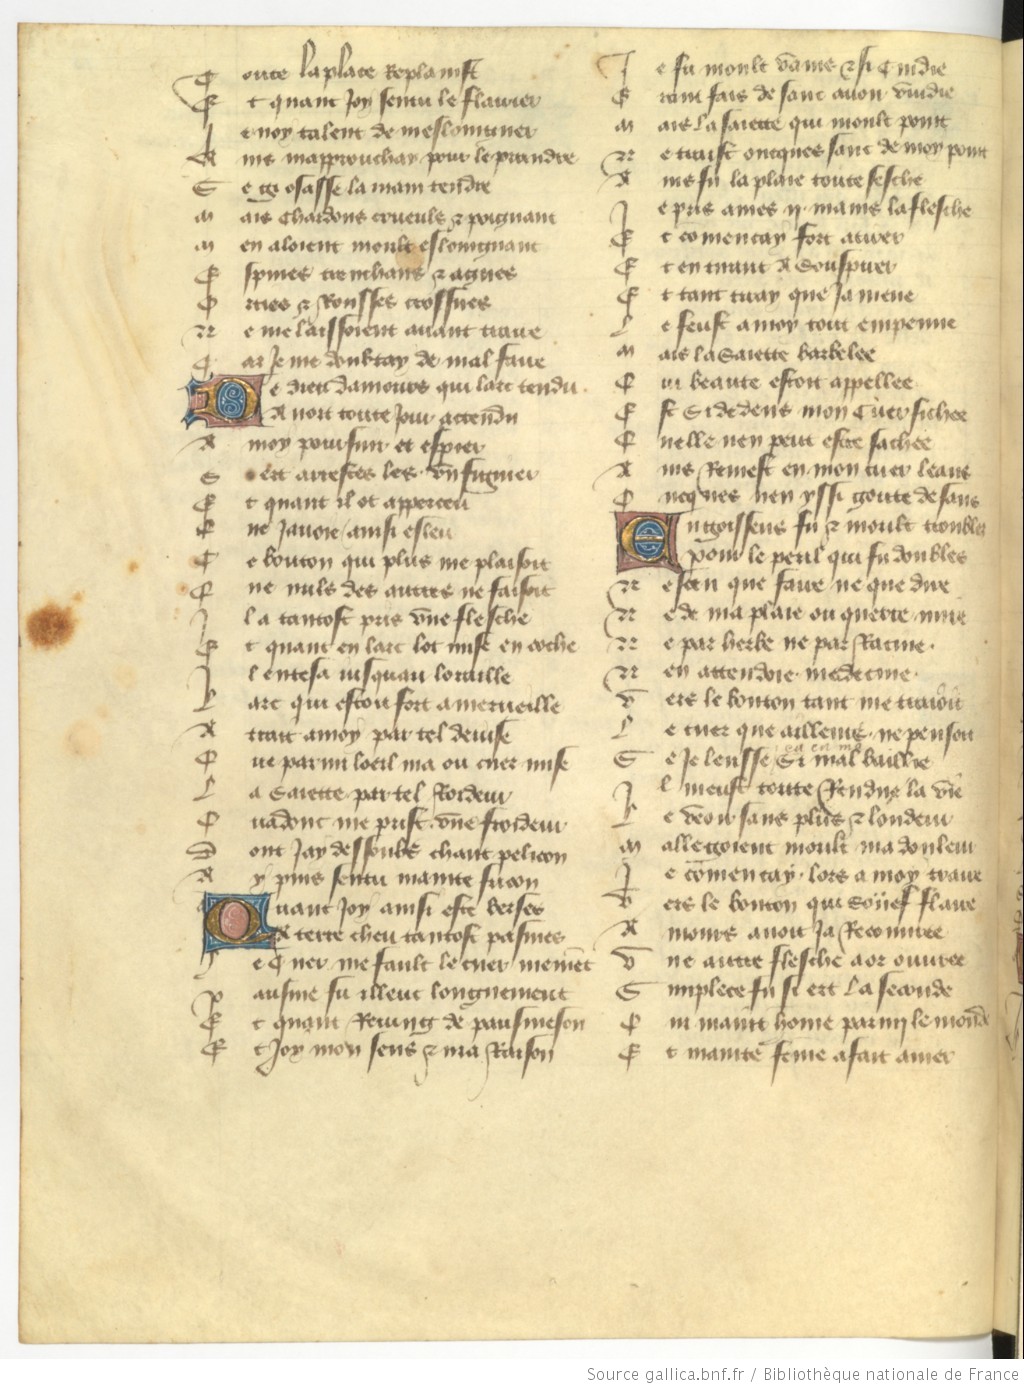 Toute la place Replanist
Et quant Joy sentu le flairier
It noy talent de meslointtner
Ains mapprouchay pour le prandre
Se Ig osasse la main tendre
mais Chardons crueuls & poignant
men aloient moult esloingnant
Espines trenchans & agues
Orties & Ronsses crossues
ne me laissoient auant traire
Car Je me doubtay de mal faire
Le dieu damours qui larc tendu
Auoit toute Jour actendu
A moy poursuir et espier
Sert arrestes les vng figuier
Et quant il ot apperceu
Que Jauoie ainsi esleu
Ce bouton qui plus me plaisoit
Que nuls des autres ne faisoit
Il a tantost pris vne flesche
Et quant en larc lot mise en coche
Il entesa iusquau loraille
Larc qui estoit fort a merueille
A trait a moy par tel deuise
Que parmi loeil ma ou cuer mise
La Saiette par tel Roideur
Quadonc me prist vne froideur
Dont Jay dessoubs chaut pelicon
Ay puis sentu mainte fricon
Quant Joy ainsi este berses
A terre cheu tantost pasmes
Le Cuer me fault le cuer mement
pausme fu illeuc longuement
Et quant Reuing de pausmeson
Et Joy mon sens & ma Raison
Je fu moult vains & si Cuidie
Grant fais de sanc auoir vuidie
mais La saiette qui moult point
ne traist oncques sanc de moy point
Ains fu la plaie toute sesche
Je pris a mes ii mains la flesche
Et comencay fort a tirer
Et en tirant A Souspirer
Et tant tiray que Jamene
Le feust a moy tout empenne
mais la Saiette barbelee
Qui beaute estoit appellee
Est Si dedens mon Cuer fichee
Quelle nen peut estre sachee
Ains Remest en mon cuer leans
Oncques nen yssi goute de sans
Angoisseus fu & moult troubles
pour le peril qui fu doubles
ne sceu que faire ne que dire
ne de ma plaie ou querre mire
ne par herbe ne par Racine
nen attendoie medecine
vers le bouton tant me tiroit
Le cuer que ailleurs ne pensoit
Se Je leusse Si mal baillie
Il meust toute Rendue la vie
Le veoir sans plus & londeur
mallegoient moult ma douleur
Je comencay lors a moy traire
vers le bouton qui Souef flaire
Amours auoit Ja Recouuree
vne autre flesche a or ouuree
Simplece fu si ert La seconde
Qui maint home parmy le monde
Et mainte feme a fait amer
Source gallica.bnf.fr / Bibliothèque nationale de France